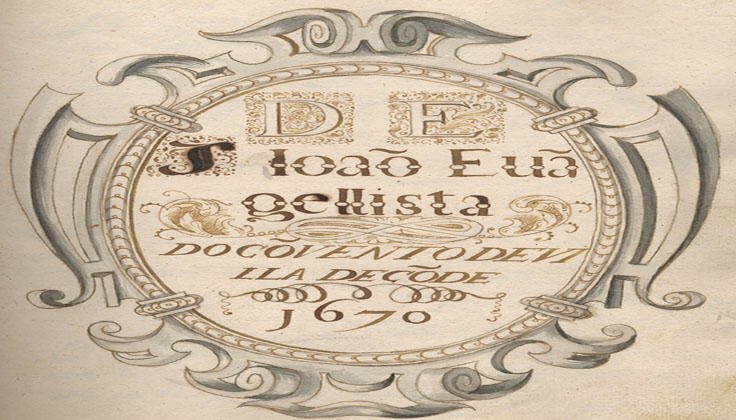 DE
S Ioaõ Euã
gellista
DO CÕVENTO DE VI
LLA DE CÕDE
1670